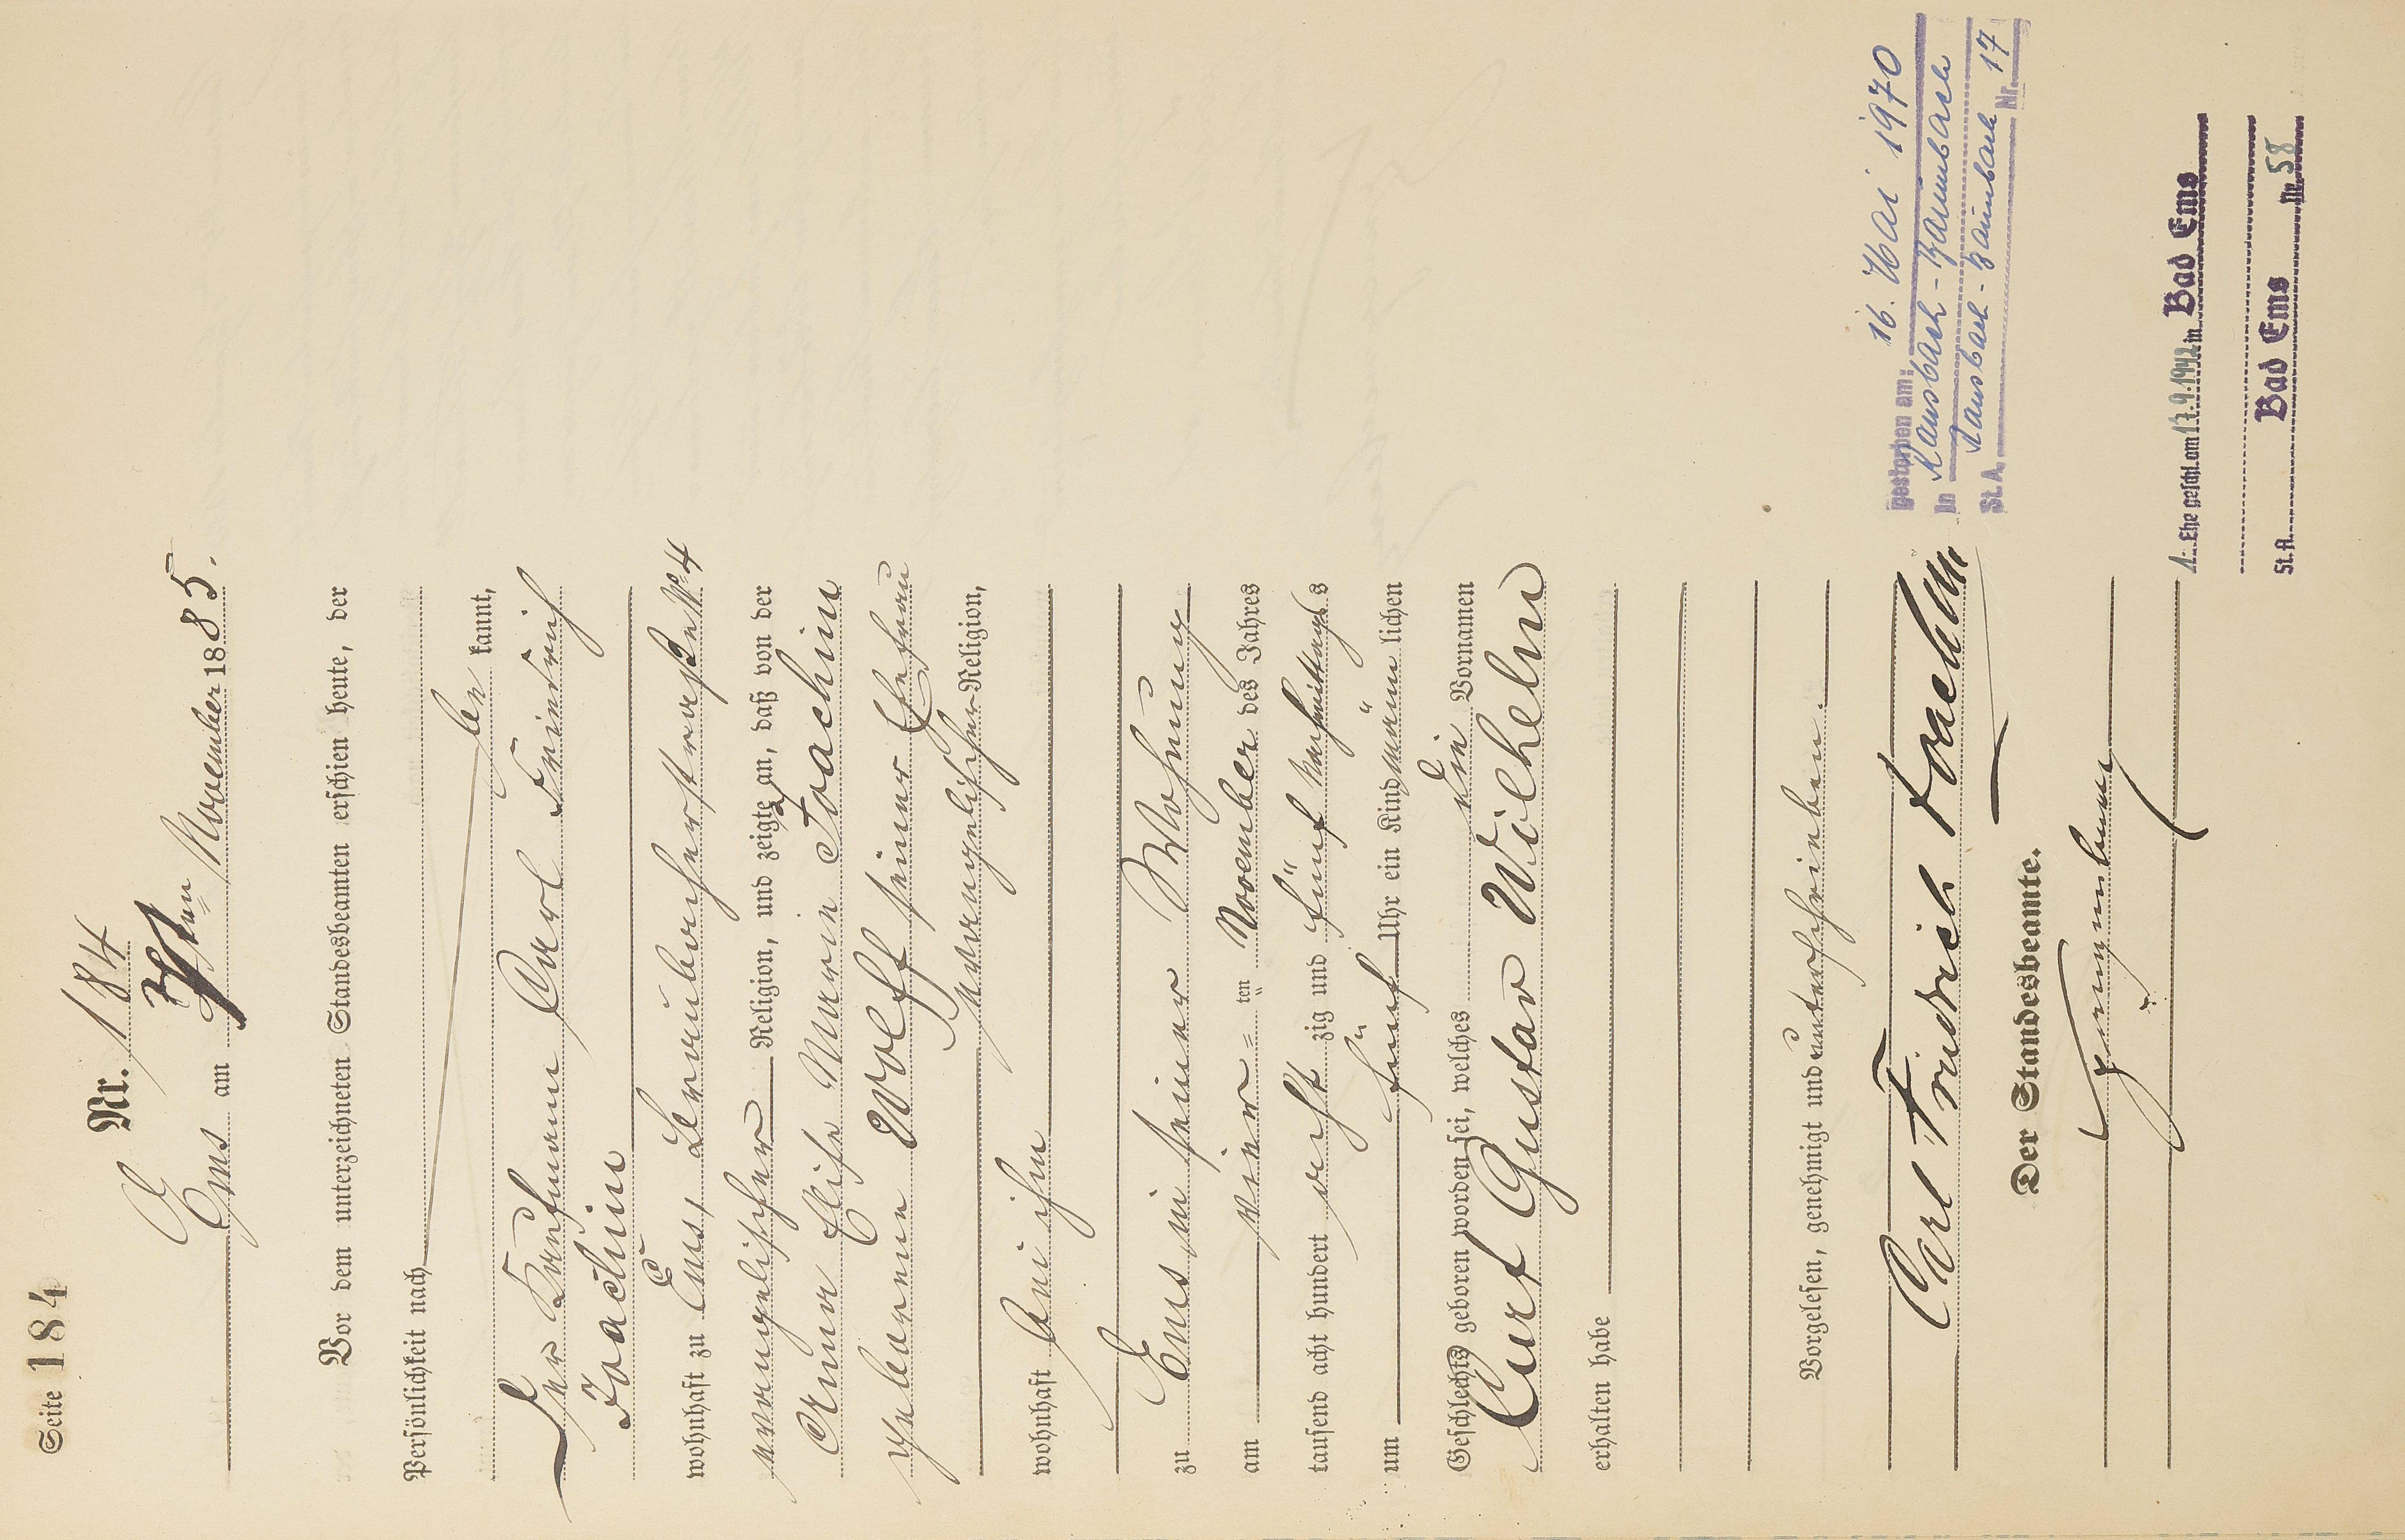 Seite 184
Nr. 184
Ems am 7ten November 1885.
Vor dem unterzeichneten Standesbeamten erschien heute, der
Persönlichkeit nach
be kannt,
Der Kaufmann Carl Friedrich
Joachim
wohnhaft zu Ems, Braubacherstraße No 4
evangelischer Religion, und zeigte an, daß von der
Anna Elise Marie Joachim
geborene Wolff seiner Ehefrau
evangelischer Religion,
wohnhaft bei ihm
zu Ems in seiner Wohnung
am vier ten November des Jahres
tausend acht hundert acht zig und fünf Nachmittags s
um fünf Uhr ein Kind männ lichen
Geschlechts geboren worden sei, welches die Vornamen
Curt Gustav Wilhelm
erhalten habe
Vorgelesen, genehmigt und unterschrieben.
Carl Friedrich Joachim
Der Standesbeamte.
gestorben am: 16. Mai 1970
in Ransbach-Baumbach
St.A. Ransbach-Baumbach Nr. 17
1. Ehe geschl. am 17.9.1942 in Bad Ems
St.A. Bad Ems Nr. 58